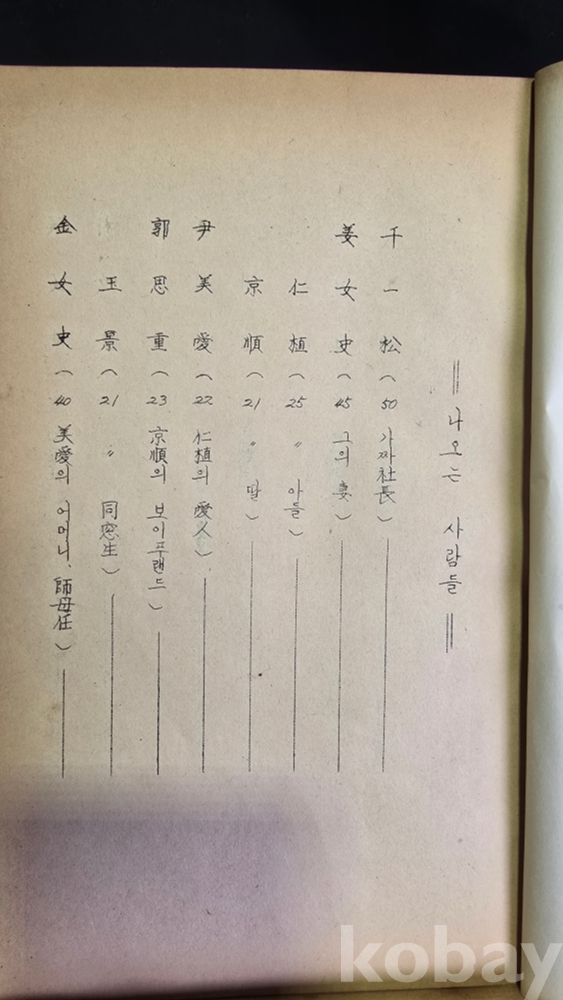 == 나오는 사람들 ==
千一松 (50 가짜社長)
姜女史 (45 그의 妻)
仁植 (25 〃 아들)
京順 (21 〃 딸)
尹美愛 (22 仁植의 愛人)
郭思重 (23 京順의 보이프랜드)
玉景 (21 〃 同窓生)
金女史 (40 美愛의 어머니, 師母任)
kobay